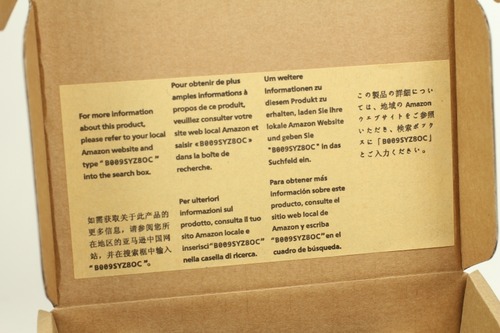 For more information
about this product,
please refer to your local
Amazon website and
type “B009SYZ8OC”
into the search box.
Pour obtenir de plus
amples informations à
propos de ce produit,
veuillez consulter votre
site web local Amazon et
saisir «B009SYZ8OC»
dans la boîte de
recherche.
Um weitere
Informationen zu
diesem Produkt zu
erhalten, laden Sie ihre
lokale Amazon Website
und geben Sie
"B009SYZ8OC" in das
Suchfeld ein.
この製品の詳細につい
ては、地域の Amazon
ウェブサイトをご参照
いただき、検索ボック
スに「B009SYZ8OC」
とご入力ください。
如需获取关于此产品的
更多信息，请参阅您所
在地区的亚马逊中国网
站，并在搜索框中输入
“B009SYZ8OC”。
Per ulteriori
informazioni sul
prodotto, consulta il tuo
sito Amazon locale e
inserisci"B009SYZ8OC"
nella casella di ricerca.
Para obtener más
información sobre este
producto, consulte el
sitio web local de
Amazon y escriba
"B009SYZ8OC"en el
cuadro de búsqueda.